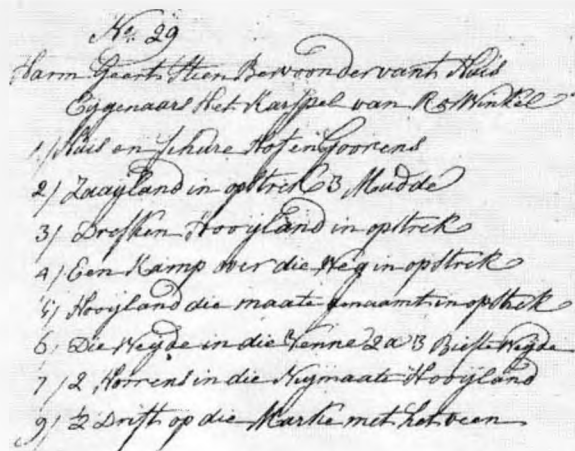 No. 29
Harm Geerts Steen Bewoonder vant Huis
Eijgenaars Het Karspel van Ro Winkel
1/ Huis en Schure Hof en Goorens
2/ Zaaijland in opstrek 3 Mudde
3/ Dresken Hooijland in opstrek
4/ Een Kamp over die Weg in opstrek
5/ Hooijland die maate genaamt in opstrek
6/ Die Weijde in die Venne 2 a 3 Bieste Weijde
7/ 2 Horrens in die Nijmaate Hooijland
9/ 2 Drift op die Marke met het veen